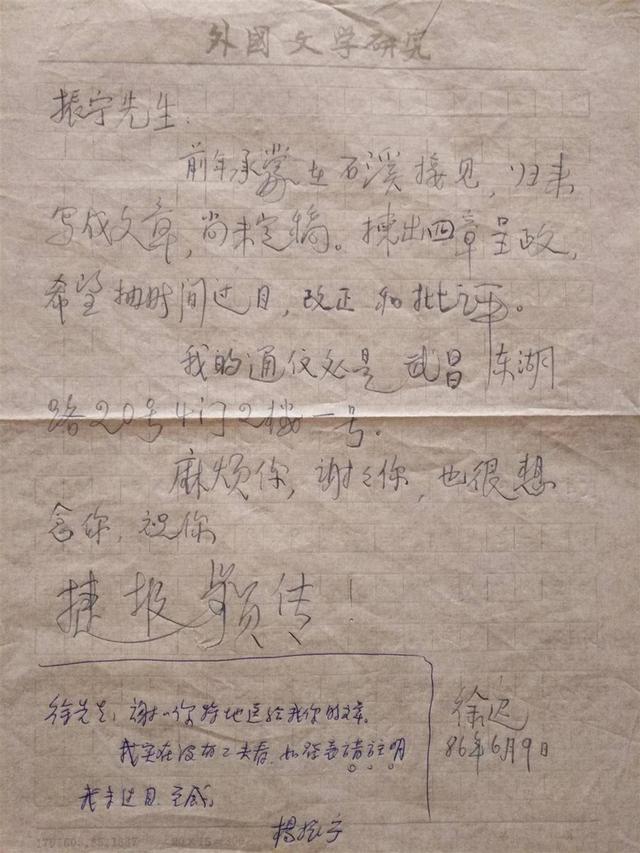 外國文学研究
振宁先生:
前年承蒙在石溪接见,归来
写成文章,尚未定稿。拣出四章呈政,
希望抽时间过目,改正和批评。
我的通信处是武昌东湖
路20号4门2楼一号。
麻烦你,谢々你,也很想
念你,祝你
捷报频传
徐迟
86年6月9日
徐先生:谢々你特地送给我你的文章。
我实在没有工夫看,如发表请注明
我未过目,至感。
杨振宁